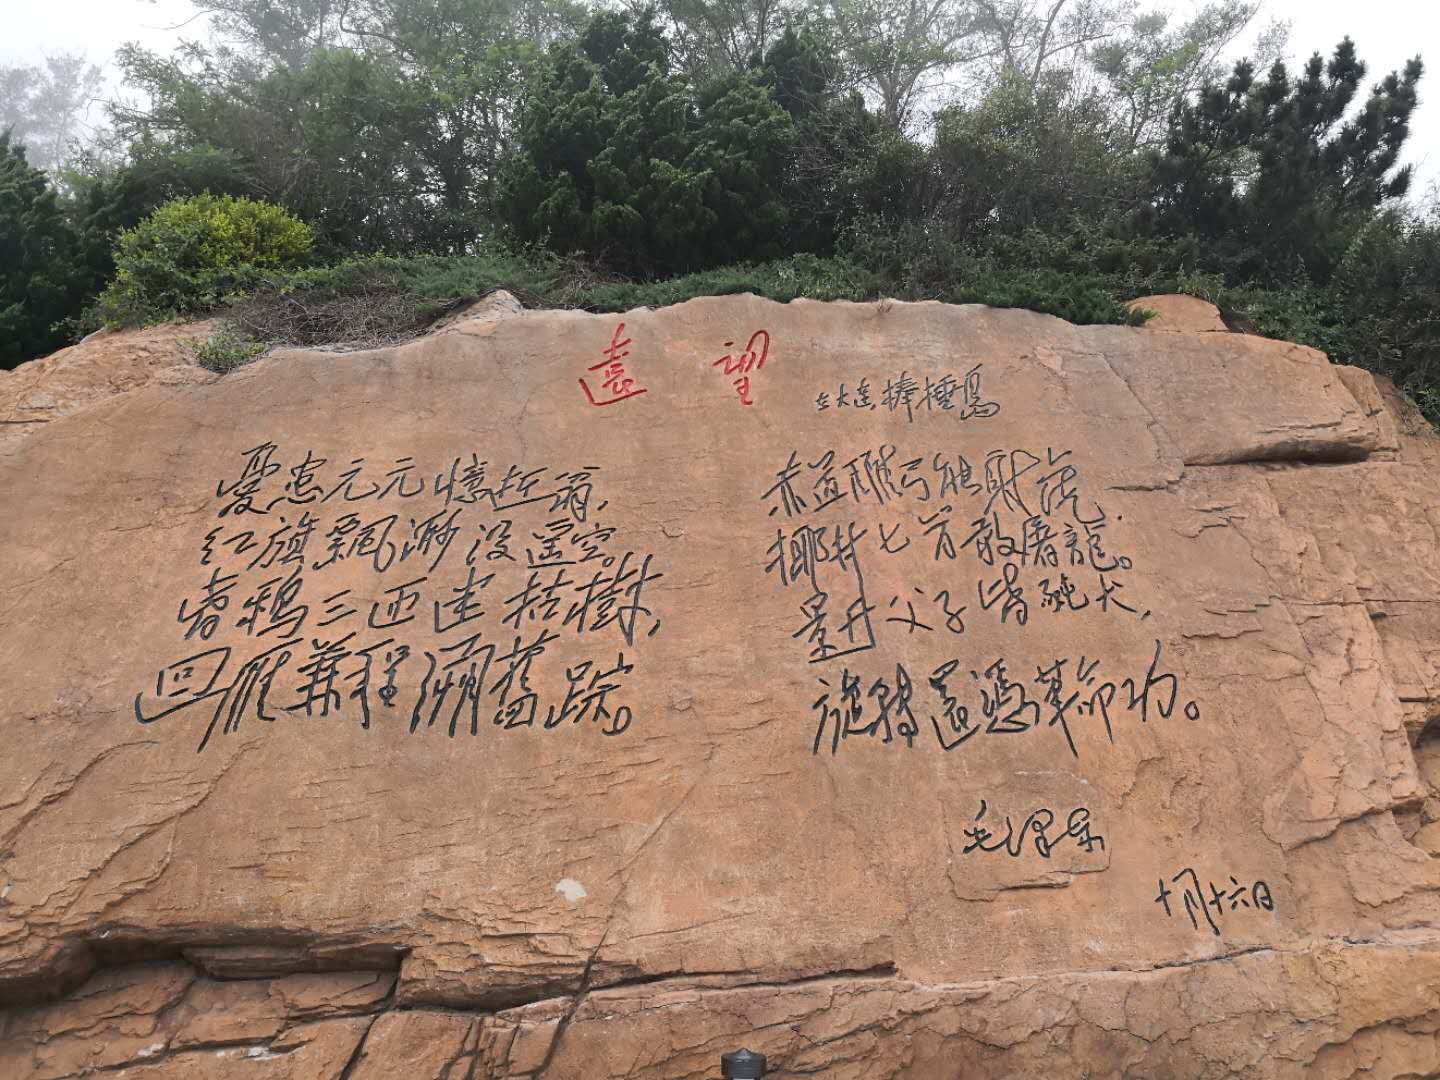 遠望
在大連棒棰島
憂患元元憶逝翁,
红旗飄渺没遥空。
昏鴉三匝迷枯樹,
回雁兼程溯舊踪。
赤道雕弓能射虎,
椰林匕首敢屠龍。
景升父子皆豚犬,
旋轉還憑革命功。
毛泽东
十月十六日